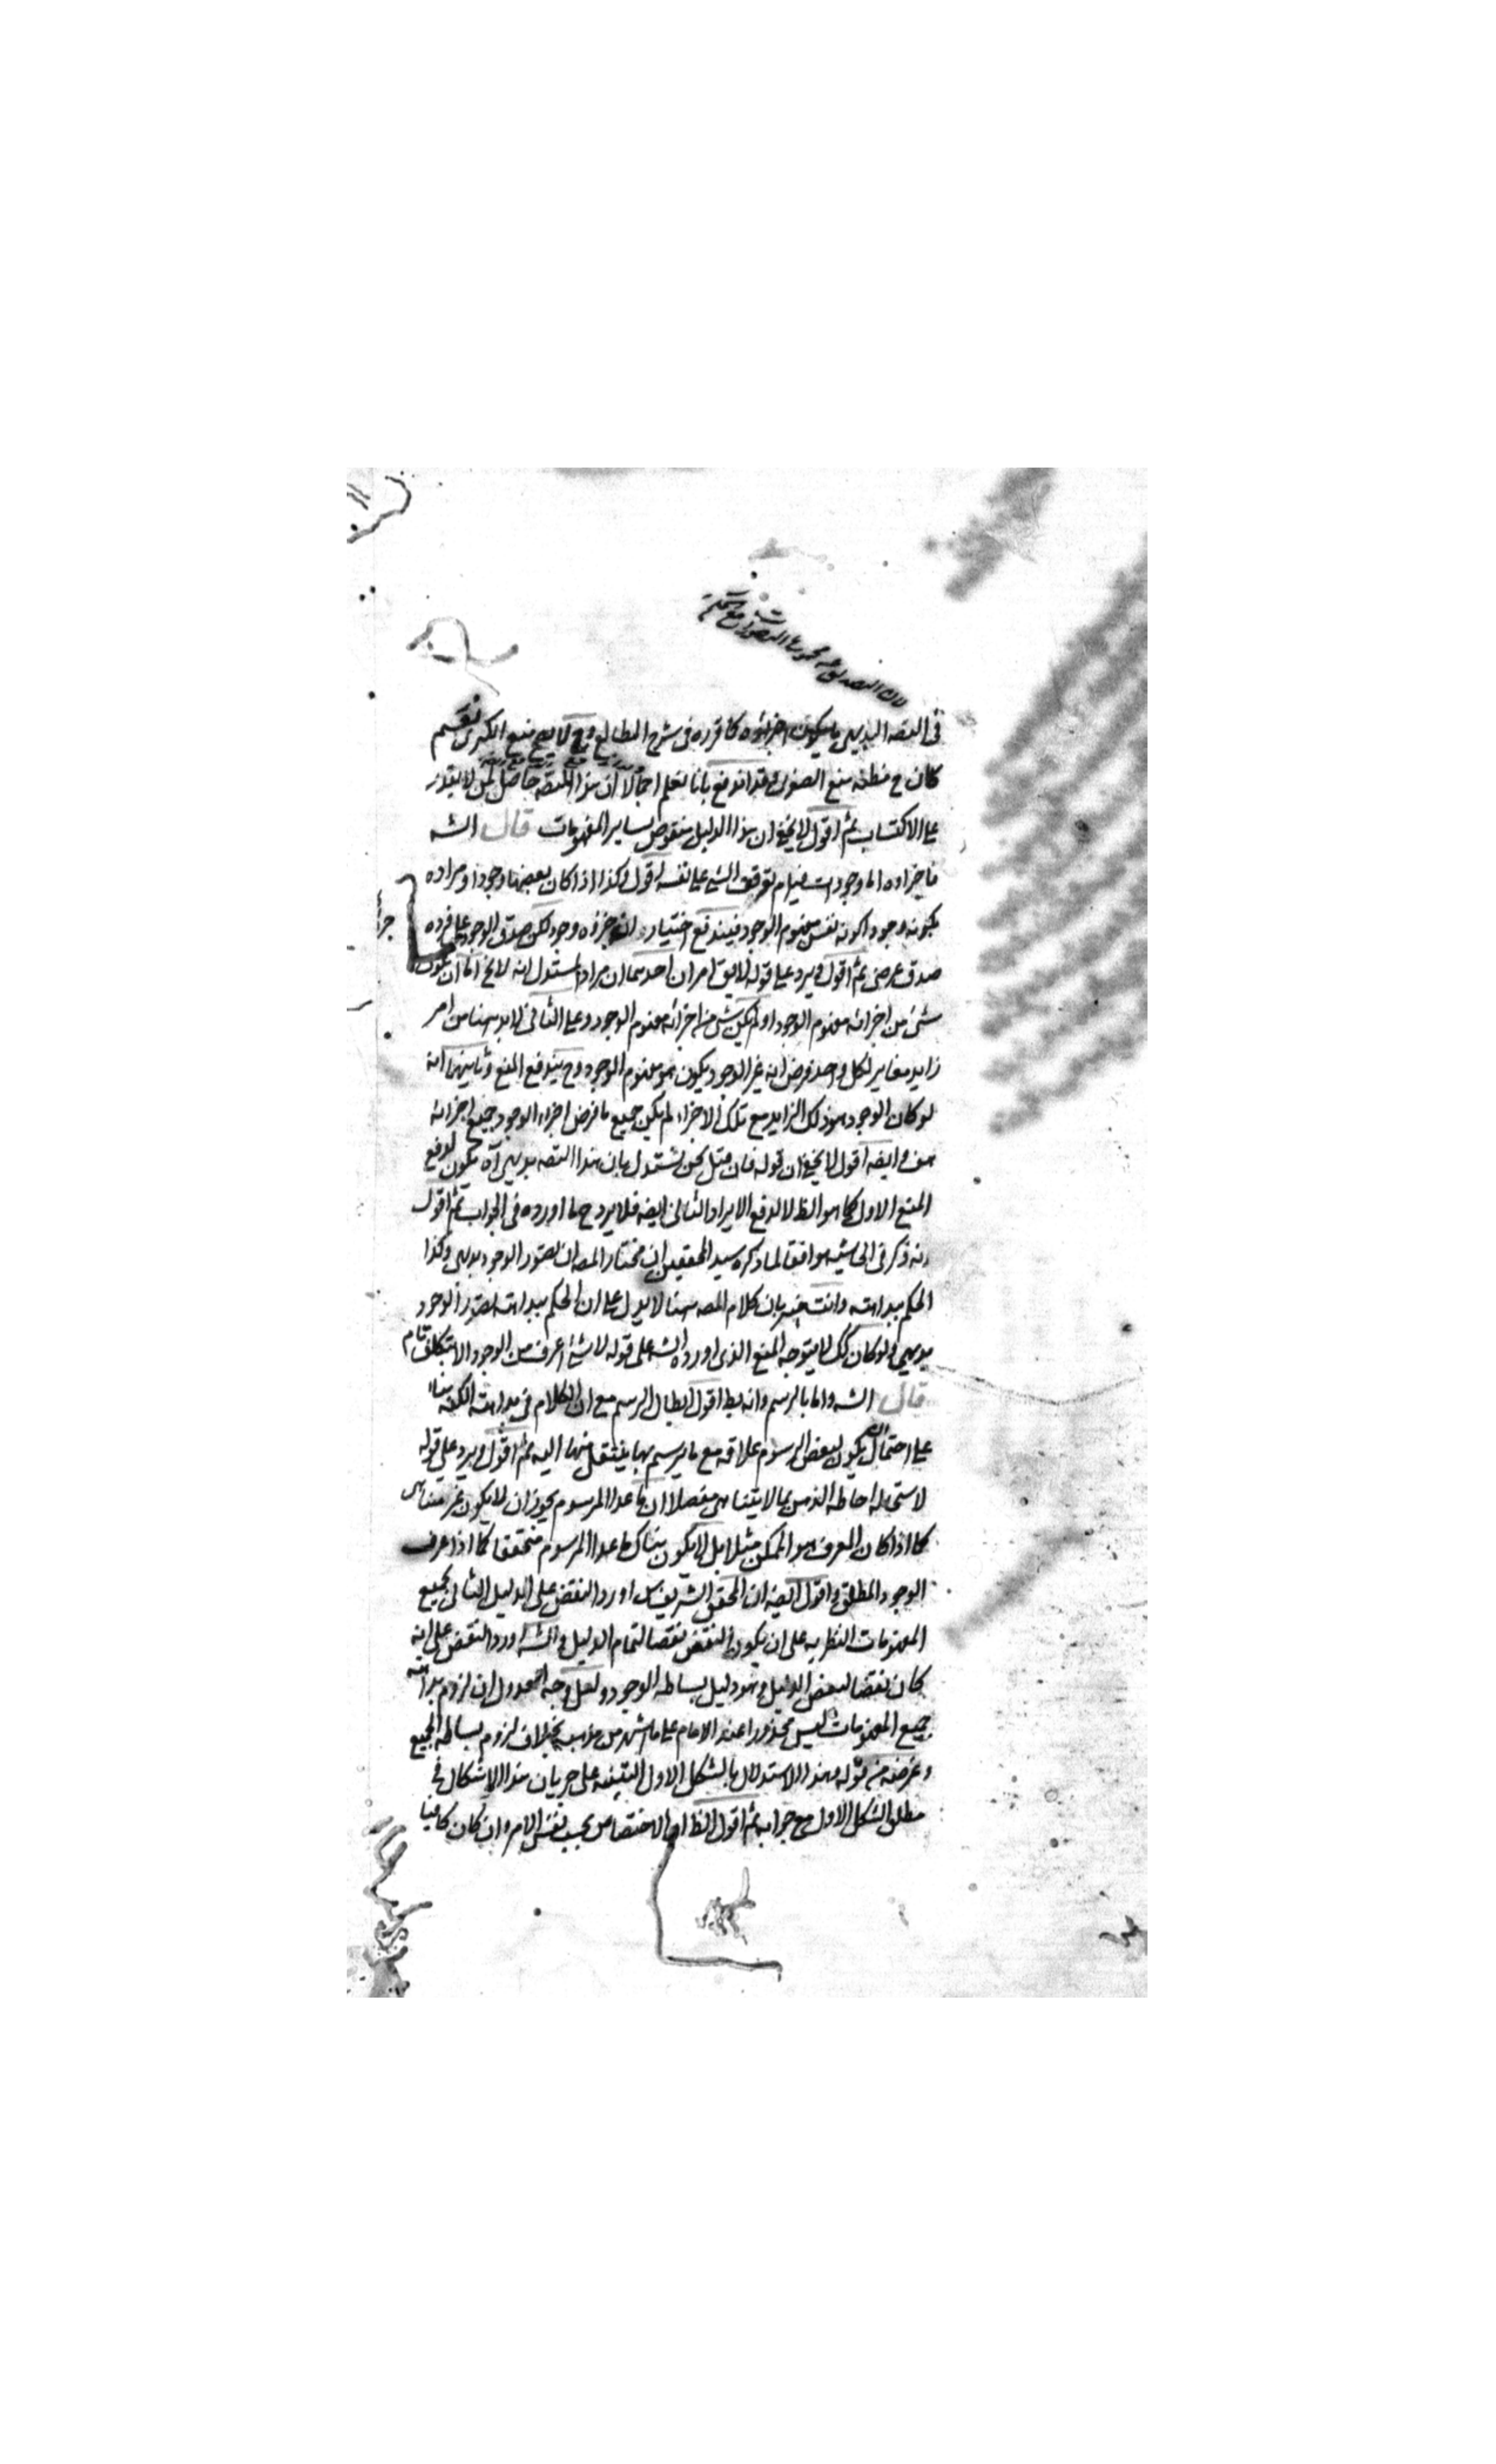 لان التصديق مجموع التصورات مع الحكم
في التصه البديهي ما يكون اجزاؤه كما قرره في شرح المطالع وح لا يصح منع الكبرى نعم
كان ح مظنه منع الصغرى وقد اندفع بانا نعلم اجمالا ان هذا التصه حاصل لمن لا يقدر
على الاكتساب ثم اقول لا يخفى ان هذا الدليل منقوض بساير المفهومات قال الشه
فاجزاوه اما وجودات فيلزم توقف الشيء على نفسه اقول وكذا اذا كان بعضها وجودا ومراده
بكونه وجودا كونه نفس مفهوم الوجود فيندفع اختيار ان جزؤه وجود لكن صدق الوجود على فرده
صدق عرضي ثم اقول ويرد على قوله لا بق امران احدهما ان مراد المستدل انه لا يخ اما ان يكون
شيء من اجزائه مفهوم الوجود او لم يكن شيء من اجزائه مفهوم الوجود وعلى الثاني لا بد هنا من امر
زايد مغاير لكل واحد فرض انه غير الوجود يكون هو مفهوم الوجود وح يندفع المنع وثانيهما انه
لو كان الوجود هو ذلك الزايد مع تلك الاجزاء لم يكن جميع ما فرض اجزاء الوجود جميع اجزائه
هف وايضه اقول لا يخفى ان قوله فان قيل نحن نستدل بان هذا التصه بديهي آه يكون لدفع
المنع الاول كما هو الظ لا لدفع الايراد الثاني ايضه فلا يرد ح ما اورده في الجواب ثم اقول
انه ذكر في الحاشيه موافقا لما ذكره سيد المحققين ان مختار المصه ان تصور الوجود بديهي وكذا
الحكم ببداهته وانت خبير بان كلام المصه ههنا لا يدل على ان الحكم ببداهته تصور الوجود
بديهي ولو كان كك لا يتوجه المنع الذي اورده الشه على قوله لا شيء اعرف من الوجود الا بتكلف تام
قال الشه واما بالرسم وانه بط اقول ابطال الرسم مع ان الكلام في بداهته الكنه بناء
على احتمال ان يكون لبعض الرسوم علاقه مع ما يرسم بها ينتقل منها اليه ثم اقول ويرد على قوله
لاستحاله احاطه الذهن بما لا يتناهى مفصلا ان ما عدا المرسوم يجوز ان لا يكون غير متناهي
كما اذا كان المعرف هو الممكن مثلا بل لا يكون هناك ما عدا المرسوم متحققا كما اذا عرف
الوجود المطلق واقول ايضه ان المحقق الشريف اورد النقض على الدليل الثاني بجميع
المفهومات النظريه على ان يكون النقض نقضا لتمام الدليل والشه اورد النقض على انه
كان نقضا لبعض الدليل وهو دليل بساطه الوجود ولعل وجه العدول ان لزوم بداهته
جميع المفهومات ليس محذورا عند الامام على ما اشتهر من مذهبه بخلاف لزوم بساطه الجميع
وغرضه من قوله وهذا الاستدلال بالشكل الاول التنبيه على جريان هذا الاشكال في
مطلق الشكل الاول مع جوابه ثم اقول الظ ان الاختصاص بحسب نفس الامر وان كان كافيا